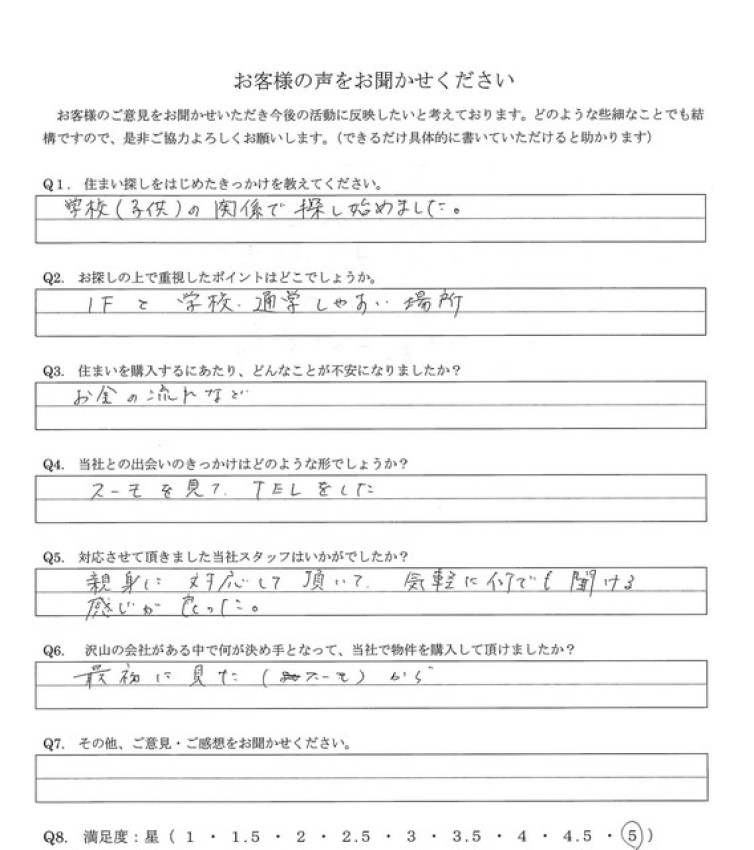 お客様の声をお聞かせください
お客様のご意見をお聞かせいただき今後の活動に反映したいと考えております。どのような些細なことでも結
構ですので、是非ご協力よろしくお願いします。（できるだけ具体的に書いていただけると助かります）
Q1. 住まい探しをはじめたきっかけを教えてください。
学校(子供)の関係で探し始めました。
Q2. お探しの上で重視したポイントはどこでしょうか。
1Fと学校.通学しやすい場所
Q3. 住まいを購入するにあたり、どんなことが不安になりましたか？
お金の流れなど
Q4. 当社との出会いのきっかけはどのような形でしょうか？
スーモを見て.TELをした
Q5. 対応させて頂きました当社スタッフはいかがでしたか？
親身に対応して頂いて.気軽に何でも聞ける
感じが良った。
Q6. 沢山の会社がある中で何が決め手となって、当社で物件を購入して頂けましたか？
最初に見た(スーモ)から
Q7. その他、ご意見・ご感想をお聞かせください。
Q8. 満足度：星（ 1 ・ 1.5 ・ 2 ・ 2.5 ・ 3 ・ 3.5 ・ 4 ・ 4.5 ・ 5 ）